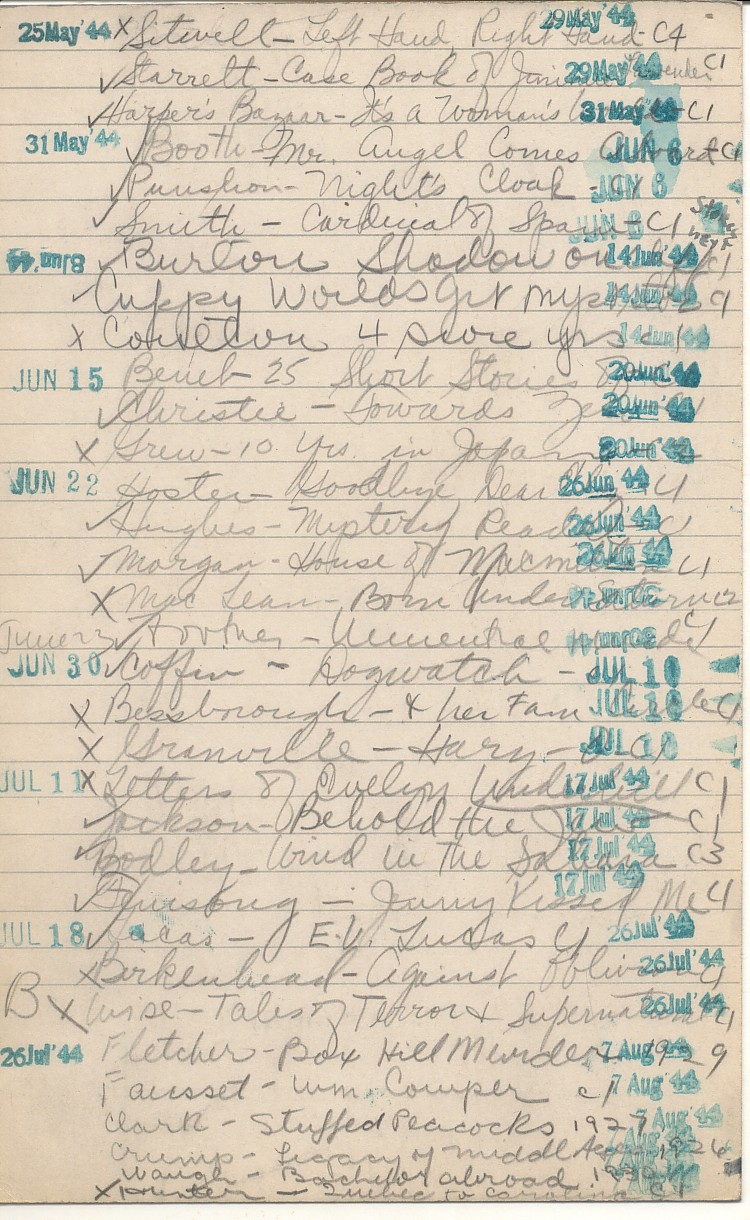 25 May '44 X Sitwell - Left Hand, Right Hand - C4 29 May '44
✓ Starrett - Case Book of Jimmie Lavender C1 29 May '44
✓ Harper's Bazaar - It's a Woman's C1 31 May '44
31 May '44 ✓ Booth - Mr. Angel Comes Aboard - C1 JUN 6
✓ Punshon - Night's Cloak - C1 JUN 6
✓ Smith - Cardinal of Spain - C1 JUN 6
8 Jun '44 ✓ Burton Shadow on C1 14 Jun '44
✓ Cuppy Worlds Grt Mys 14 Jun '44
X 4 score yrs C1 14 Jun '44
JUN 15 Benet - 25 Short Stories 20 Jun '44
✓ Christie - Towards Zero C1 20 Jun '44
X Grew - 10 Yrs. in Japan 20 Jun '44
JUN 22 Goodbye Dear C1 26 Jun '44
✓ Hughes - Mystery Reader C1 26 Jun '44
✓ Morgan - House of Macmillan C1 26 Jun '44
X MacLean - Born Under Saturn C2 30 Jun '44
✓ - 30 Jun '44
JUN 30 ✓ Coffin - Dogwatch - JUL 10
X Bessborough - & her Fam Circle C1 JUL 10
X Granville - Hary-O C1 JUL 10
JUL 11 X Letters of Evelyn Underhill C1 17 Jul '44
✓ Jackson - Behold the Jew C1 17 Jul '44
✓ Bodley - Wind in the Sahara C3 17 Jul '44
✓ - Jenny Kissed Me C1 17 Jul '44
JUL 18 ✓ Lucas - E.V. Lucas C1 26 Jul '44
X Birkenhead - Against Oblivion C1 26 Jul '44
B X Wise - Tales of Terror & Supernatural C1 26 Jul '44
26 Jul '44 Fletcher - Box Hill Murder 1929 7 Aug '44
Fausset - Wm. Cowper C1 7 Aug '44
Clark - Stuffed Peacocks 1927 7 Aug '44
Crump - Legacy of Middle Ages 1926 7 Aug '44
Waugh - Bachelor abroad 1930
X Hunter - Quebec to Carolina C1